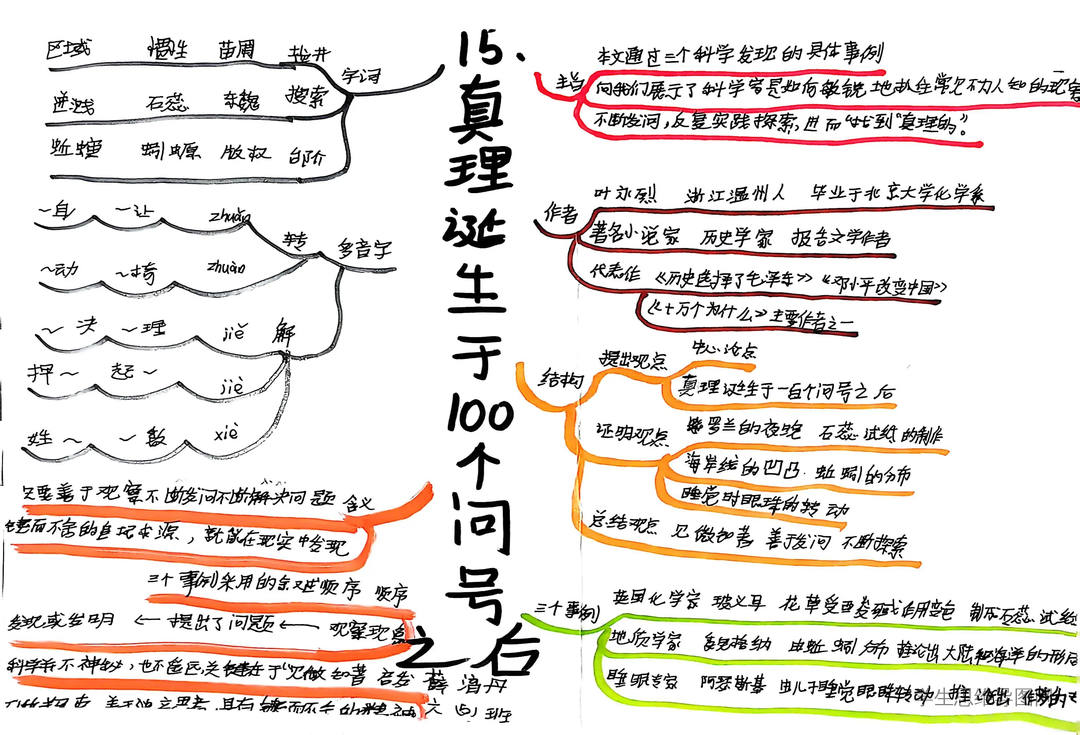 15、真理诞生于100个问号之后
字词
区域 惯性 苗圃
逆时 石蕊 搜索
蚯蚓 版权
多音字
转
～自 ～让 zhuǎn
～动 ～椅 zhuàn
解
～决 ～理 jiě
押～ 起～ jiè
姓～ ～数 xiè
含义
只要善于观察不断发问不断解决问题
就能在现实中发现
顺序
三个事例采用的叙述顺序
发现或发明 ← 提出了问题 ← 观察现象
科学并不神秘，也不遥远关键在于“见微知著
本文通过三个科学发现的具体事例
向我们展示了科学家是如何敏锐地抓住常见不为人知的现象
不断发问，反复实践探索，进而“找到“真理的”。
作者
叶永烈 浙江温州人 毕业于北京大学化学系
著名小说家 历史学家 报告文学作者
代表作 《历史选择了毛泽东》《邓小平改变中国》
《十万个为什么》主要作者之一
结构
提出观点 中心论点
真理诞生于一百个问号之后
证明观点 紫罗兰的夜晚 石蕊试纸的制作
海岸线的凹凸 蚯蚓的分布
睡觉时眼珠的转动
总结观点 见微知著 善于发问 不断探索
三个事例
英国化学家 波义耳 花草受
地质学家 蚯蚓分布 推论出大陆和海洋的形成
睡眠专家 阿瑟斯基 儿子睡觉眼珠转动 推论出 作梦的
学生思维导图